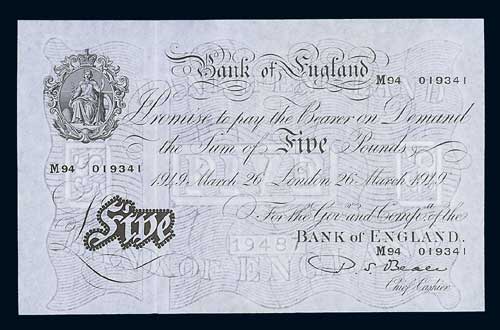 Bank of England
M94 019341
I Promise to pay the Bearer on Demand
the Sum of Five Pounds
M94 019341
1949 March 26 London 26 March 1949
For the Govr. and Compa. of the
BANK OF ENGLAND.
M94 019341
£Five
1948
P. S. Beale
Chief Cashier